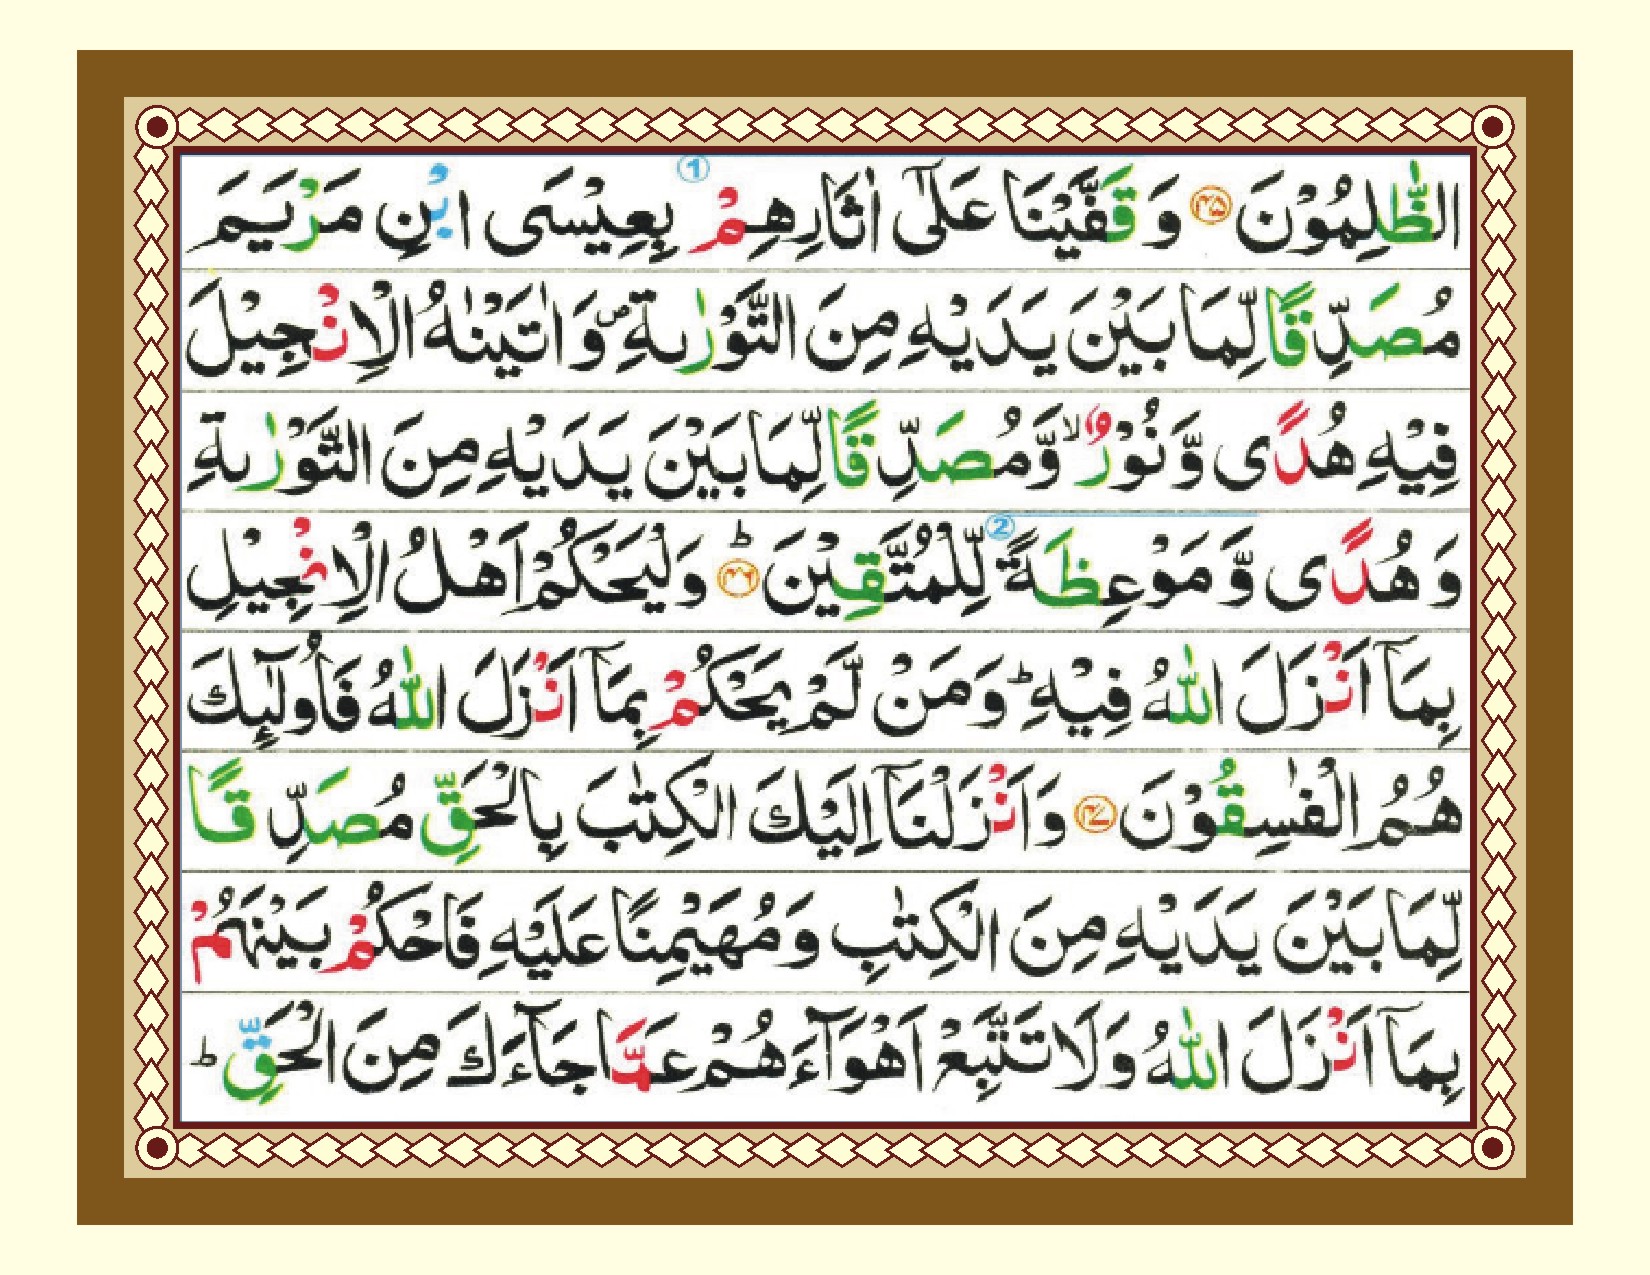 الظّٰلِمُوْنَ ﴿۴۵﴾ وَ قَفَّيْنَا عَلٰٓى اٰثَارِهِمْ ① بِعِيْسَى ابْنِ مَرْيَمَ
مُصَدِّقًا لِّمَا بَيْنَ يَدَيْهِ مِنَ التَّوْرٰىةِ ۖ وَاٰتَيْنٰهُ الْاِنْجِيْلَ
فِيْهِ هُدًى وَّنُوْرٌ ۙ وَّمُصَدِّقًا لِّمَا بَيْنَ يَدَيْهِ مِنَ التَّوْرٰىةِ
وَ هُدًى وَّ مَوْعِظَةً ② لِّلْمُتَّقِيْنَ ﴿۴۶﴾ؕ وَلْيَحْكُمْ اَهْلُ الْاِنْجِيْلِ
بِمَآ اَنْزَلَ اللّٰهُ فِيْهِ ؕ وَمَنْ لَّمْ يَحْكُمْ بِمَآ اَنْزَلَ اللّٰهُ فَاُولٰٓئِكَ
هُمُ الْفٰسِقُوْنَ ﴿۴۷﴾ وَاَنْزَلْنَآ اِلَيْكَ الْكِتٰبَ بِالْحَقِّ مُصَدِّقًا
لِّمَا بَيْنَ يَدَيْهِ مِنَ الْكِتٰبِ وَمُهَيْمِنًا عَلَيْهِ فَاحْكُمْ بَيْنَهُمْ
بِمَآ اَنْزَلَ اللّٰهُ وَلَا تَتَّبِعْ اَهْوَآءَهُمْ عَمَّا جَآءَكَ مِنَ الْحَقِّ ؕ